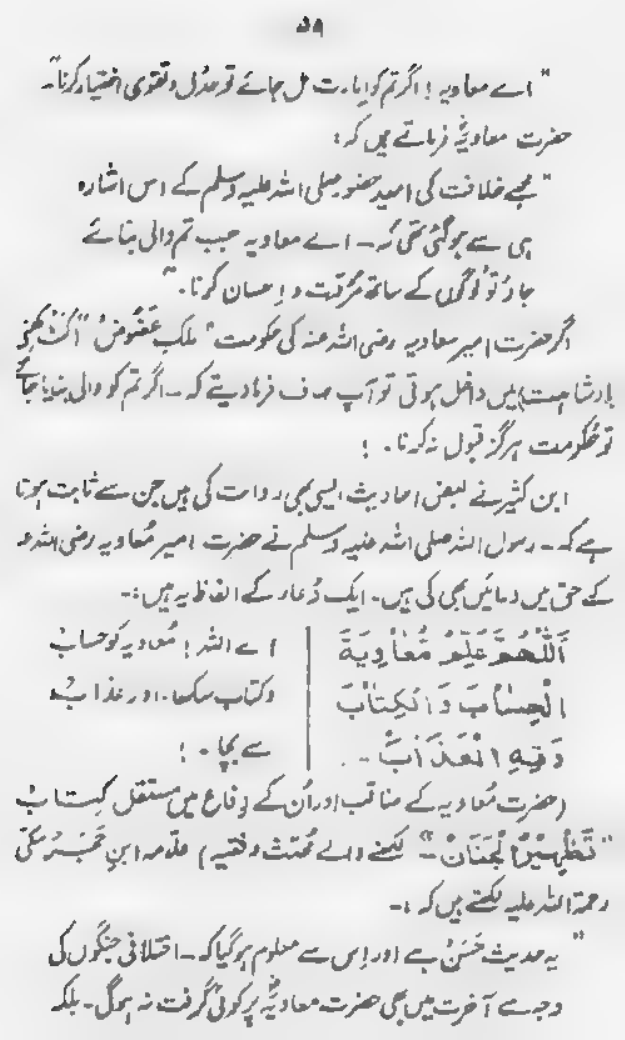 ۵۸
"اے معاویہ! اگر تم کو امارت مل جائے تو عدل و تقویٰ اختیار کرنا"۔
حضرت معاویہؓ فرماتے ہیں کہ:
"مجھے خلافت کی امید حضور صلی اللہ علیہ وسلم کے اس اشارہ
ہی سے ہو گئی تھی کہ۔ اے معاویہ جب تم والی بنائے
جاؤ تو لوگوں کے ساتھ مرُوّت و اِحسان کرنا۔"
اگر حضرت امیر معاویہ رضی اللہ عنہ کی حکومت "ملک عَضُوضٌ" (کٹ کھنی
بادشاہت) میں داخل ہوتی تو آپ صاف فرمادیتے کہ۔ اگر تم کو والی بنایا جائے
تو حُکومت ہرگز قبول نہ کرنا۔ !
ابن کثیر نے بعض احادیث ایسی بھی روایت کی ہیں جن سے ثابت ہوتا
ہے کہ۔ رسول اللہ صلی اللہ علیہ وسلم نے حضرت امیر مُعاویہ رضی اللہ عنہ
کے حق میں دعائیں بھی کی ہیں۔ ایک دُعاء کے الفاظ یہ ہیں:۔
اَللّٰهُمَّ عَلِّمْ مُعَاوِيَةَ
الْحِسَابَ وَالْكِتَابَ
وَقِهِ الْعَذَابَ۔
اے اللہ! مُعاویہ کو حساب
وکتاب سکھا۔ اور عذاب
سے بچا۔ !
(حضرت مُعاویہ کے مناقب اور اُن کے دِفاع میں مستقل کِتاب
"تَطْهِيْرُ الْجَنَانْ" لکھنے والے مُحدّث وفقیہ) علّامہ ابنِ حَجَر مکّی
رحمۃ اللہ علیہ لکھتے ہیں کہ:۔
"یہ حدیث حَسَنْ ہے اور اِس سے معلوم ہوگیا کہ۔ اختلافی جنگوں کی
وجہ سے آخرت میں بھی حضرت معاویہؓ پر کوئی گرفت نہ ہوگی۔ بلکہ